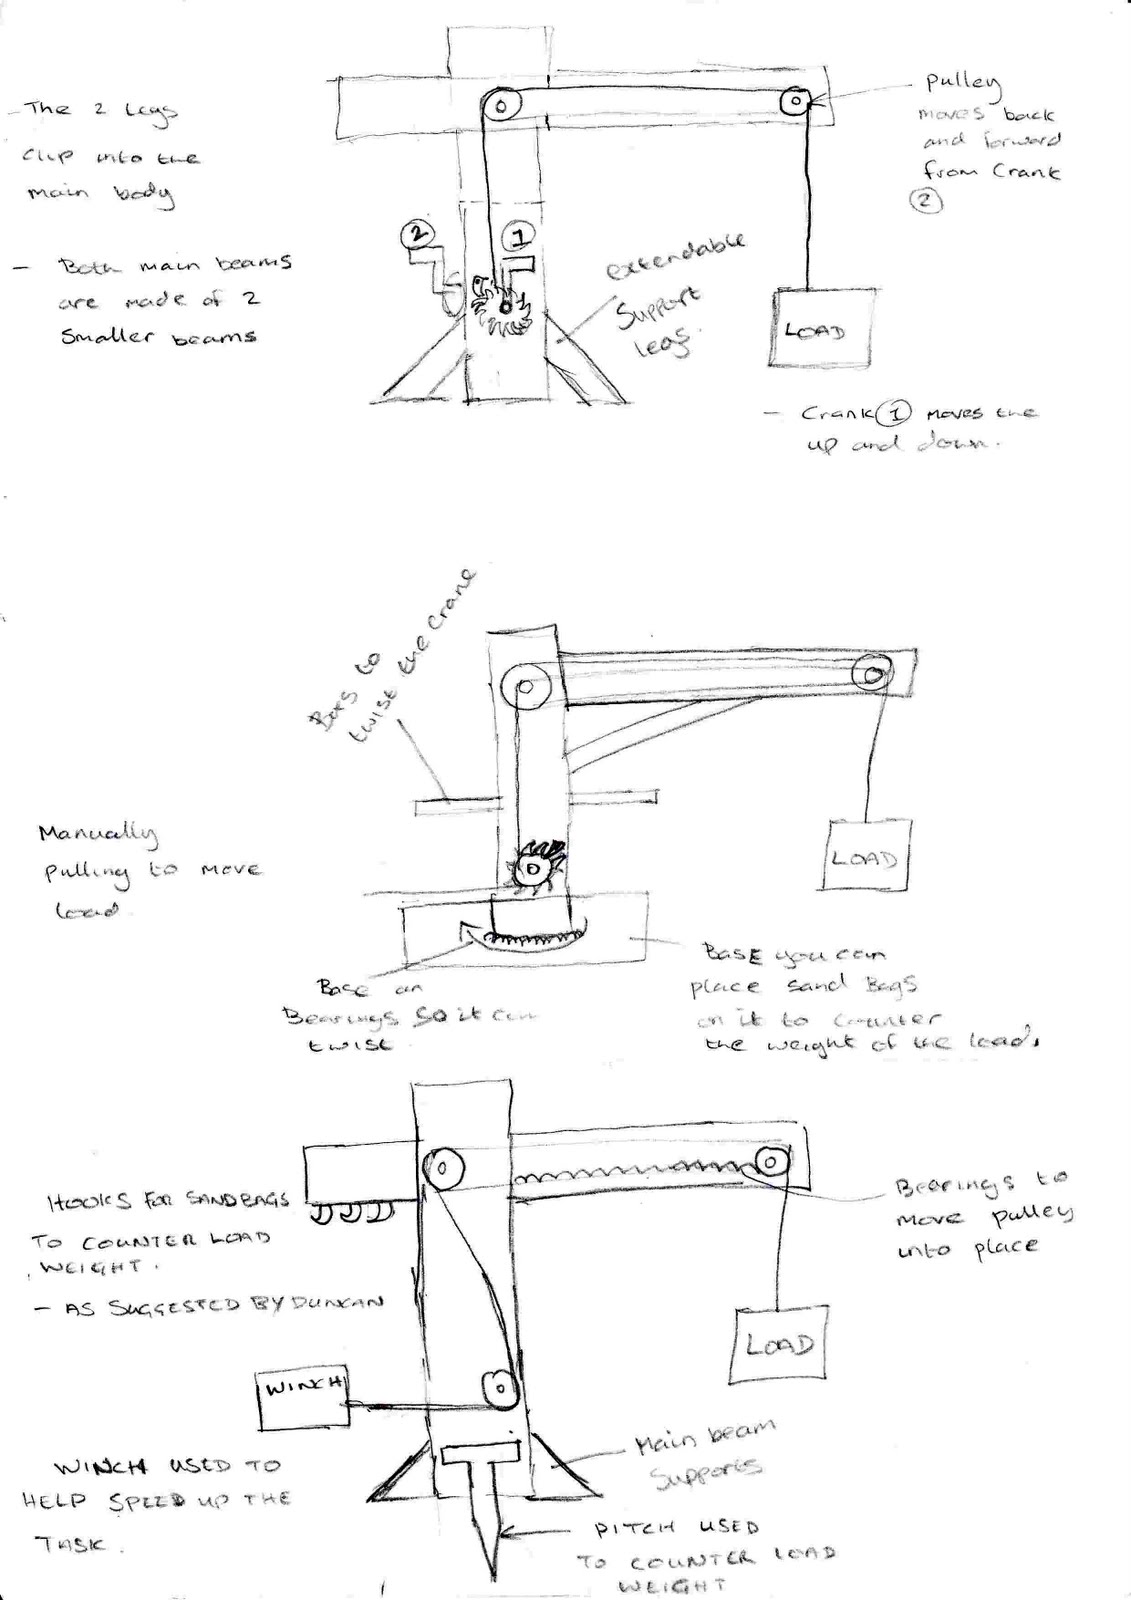 - The 2 Legs
clip into the
main body
- Both main beams
are made of 2
Smaller beams
Pulley
moves back
and forward
from Crank
2
2
1
extendable
Support
legs.
LOAD
- Crank 1 moves the
up and down.
Bars to
twist the Crane
Manually
pulling to move
load
LOAD
Base on
Bearings so it can
twist
Base you can
place sand Bags
on it to counter
the weight of the load.
HOOKS FOR SANDBAGS
TO COUNTER LOAD
WEIGHT.
- AS SUGGESTED BY DUNCAN
Bearings to
move pulley
into place
LOAD
WINCH
Main beam
Supports
WINCH USED TO
HELP SPEED UP THE
TASK.
PITCH USED
TO COUNTER LOAD
WEIGHT